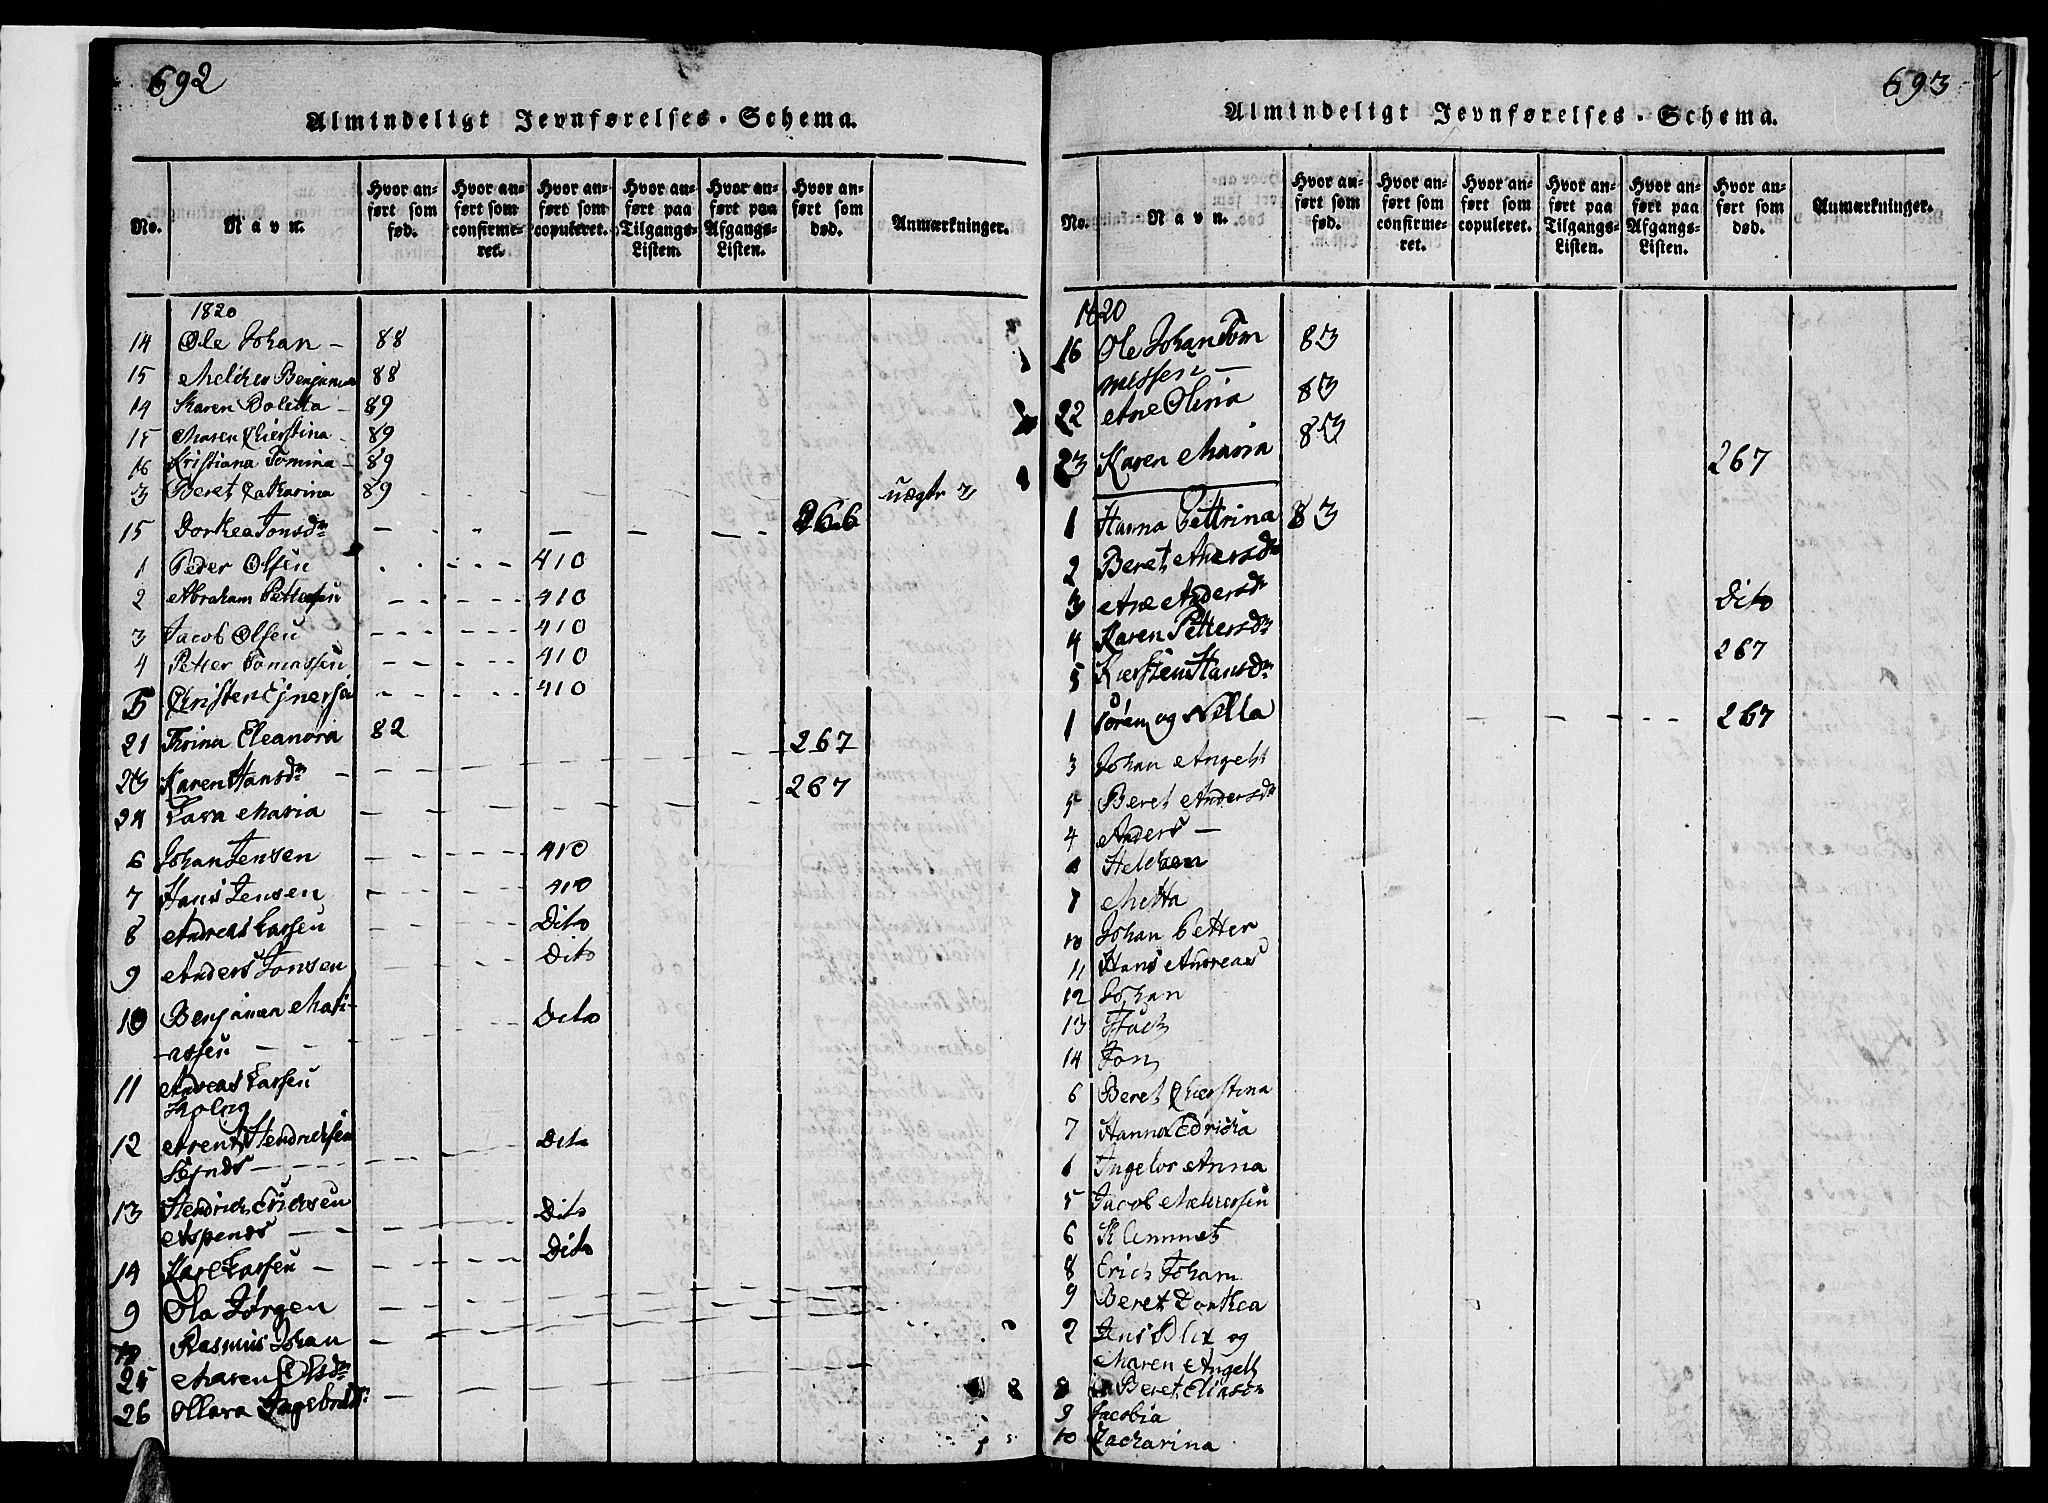 692
Almindeligt Jevnførelses-Schema.
No. Navn. Hvor anført som fød. Hvor anført som confirmeret. Hvor anført som copuleret. Hvor anført paa Tilgangs-Listen. Hvor anført paa Afgangs-Listen. Hvor anført som død. Anmærkninger.
1820
14 Ole Johan — 88
15 Melcher Benjamin 88
14 Karen Boletta — 89
15 Maren Chierstina — 89
16 Kristiana Tomina — 89
3 Beret Catharina 89 uægte 3
15 Dorkea Jonsdr 266
1 Peder Olsen 410
2 Abraham Pettersen 410
3 Jacob Olsen 410
4 Petter Tomassen 410
5 Christen Ejnersen 410
21 Trina Eleanora 82 267
23 Karen Hansdr — 267
24 Lava Maria
6 Johan Jensen 410
7 Hans Jensen 410
8 Andreas Larsen Dito
9 Anders Jonsen Dito
10 Benjamen Mati- Dito
-assen
11 Andreas Larsen
Kolvig
12 Arent Hendrichsen Dito
Søjnds
13 Hendrich Erichsen Dito
Aspenes
14 Karl Larsen — Dito
9 Ola Jørgen
10 Rasmus Johan
25 Maren Olsdr
26 Ollava Ingebrdtr
693
Almindeligt Jevnførelses-Schema.
No. Navn. Hvor anført som fød. Hvor anført som confirmeret. Hvor anført som copuleret. Hvor anført paa Tilgangs-Listen. Hvor anført paa Afgangs-Listen. Hvor anført som død. Anmærkninger.
1820
16 Ole Johan Tom 83
messen —
22 Ane Olina 83
23 Karen Maria 83 267
1 Hanna Pettrina 83
2 Beret Andersdr
3 Ane Andersdr Dito
4 Karen Pettersdr 267
5 Kiersten Hansdr
1 Søren og Nilla 267
3 Johan Angelt
5 Beret Andersdr
4 Anders —
Helchen
Metta
10 Johan Petter
11 Hans Andreas
12 Johan
13
14 Jon
6 Beret Chierstina
7 Hanna Edricka
6 Ingebor Anna
5 Jacob Melchersen
6 Klemmet
8 Erich Johan
9 Beret Dorthea
2 Jens Blix og
Maren Angelt
8 Beret Eliasen
9 Jacobia
10 Zacharina